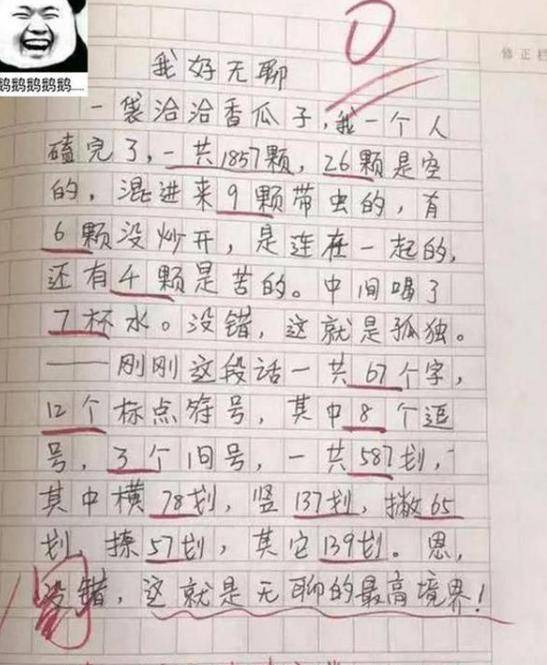 鹅鹅鹅鹅鹅....
0
修正栏
我好无聊
一袋洽洽香瓜子,我一个人
磕完了,一共1857颗,26颗是空
的,混进来9颗带虫的,有
6颗没炒开,是连在一起的,
还有4颗是苦的。中间喝了
7杯水。没错,这就是孤独。
——刚刚这段话一共67个字,
12个标点符号,其中8个逗
号,3个句号,一共587划,
其中横78划,竖137划,撇65
划,捺57划,其它139划。恩,
没错,这就是无聊的最高境界!